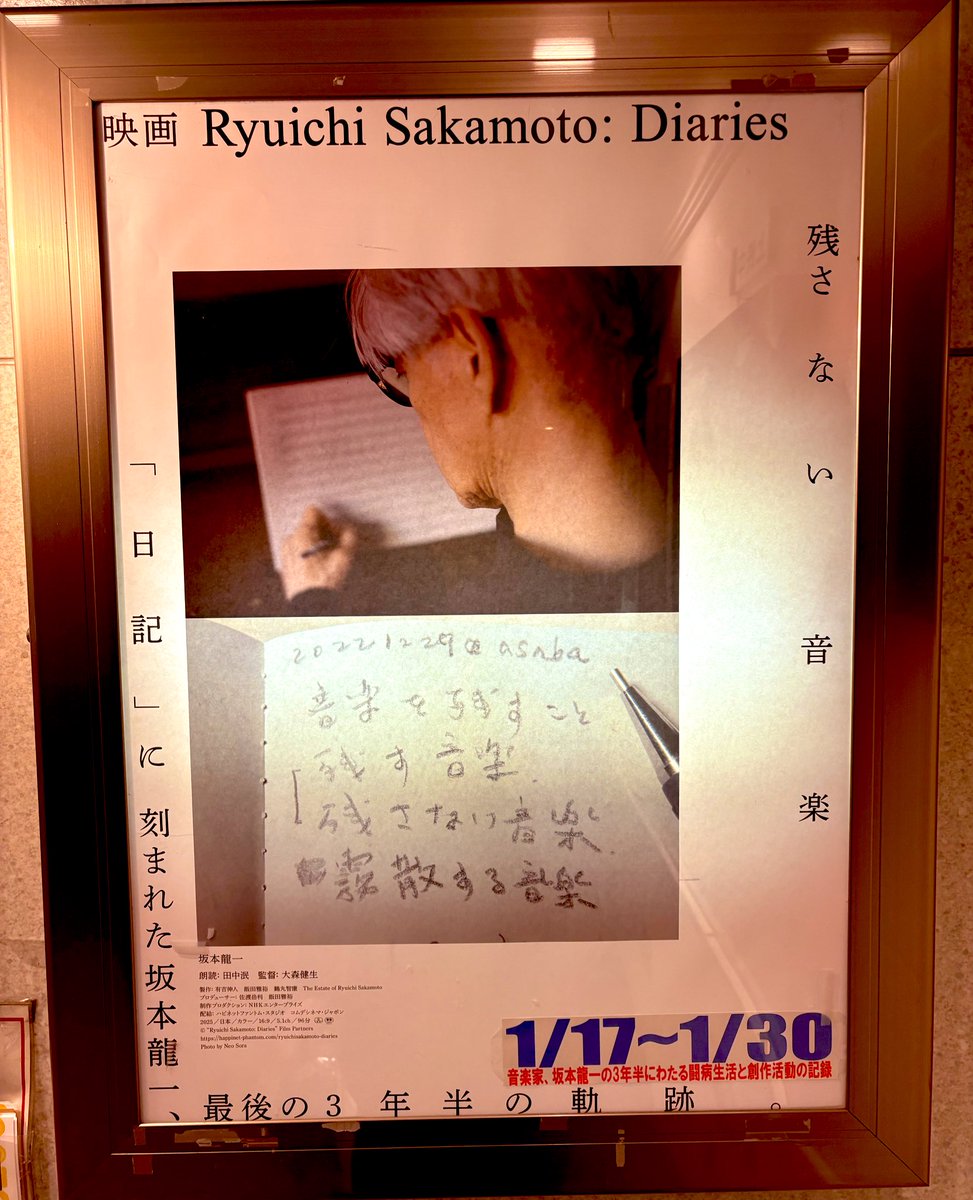 映画 Ryuichi Sakamoto: Diaries
残さない音楽
「日記」に刻まれた坂本龍一、
最後の3年半の軌跡。
20221229 asaba
音楽を残すこと
残す音楽
残さない音楽
霧散する音楽
坂本龍一
朗読: 田中泯 監督: 大森健生
製作: 有吉伸人 飯田雅裕 鶴丸智康 The Estate of Ryuichi Sakamoto
プロデューサー: 佐渡岳利 飯田雅裕
制作プロダクション: NHKエンタープライズ
配給: ハピネットファントム・スタジオ コムデシネマ・ジャポン
2025/日本/カラー/16:9/5.1ch/96分
© "Ryuichi Sakamoto: Diaries" Film Partners
https://happinet-phantom.com/ryuichisakamoto-diaries
Photo by Neo Sora
1/17～1/30
音楽家、坂本龍一の3年半にわたる闘病生活と創作活動の記録